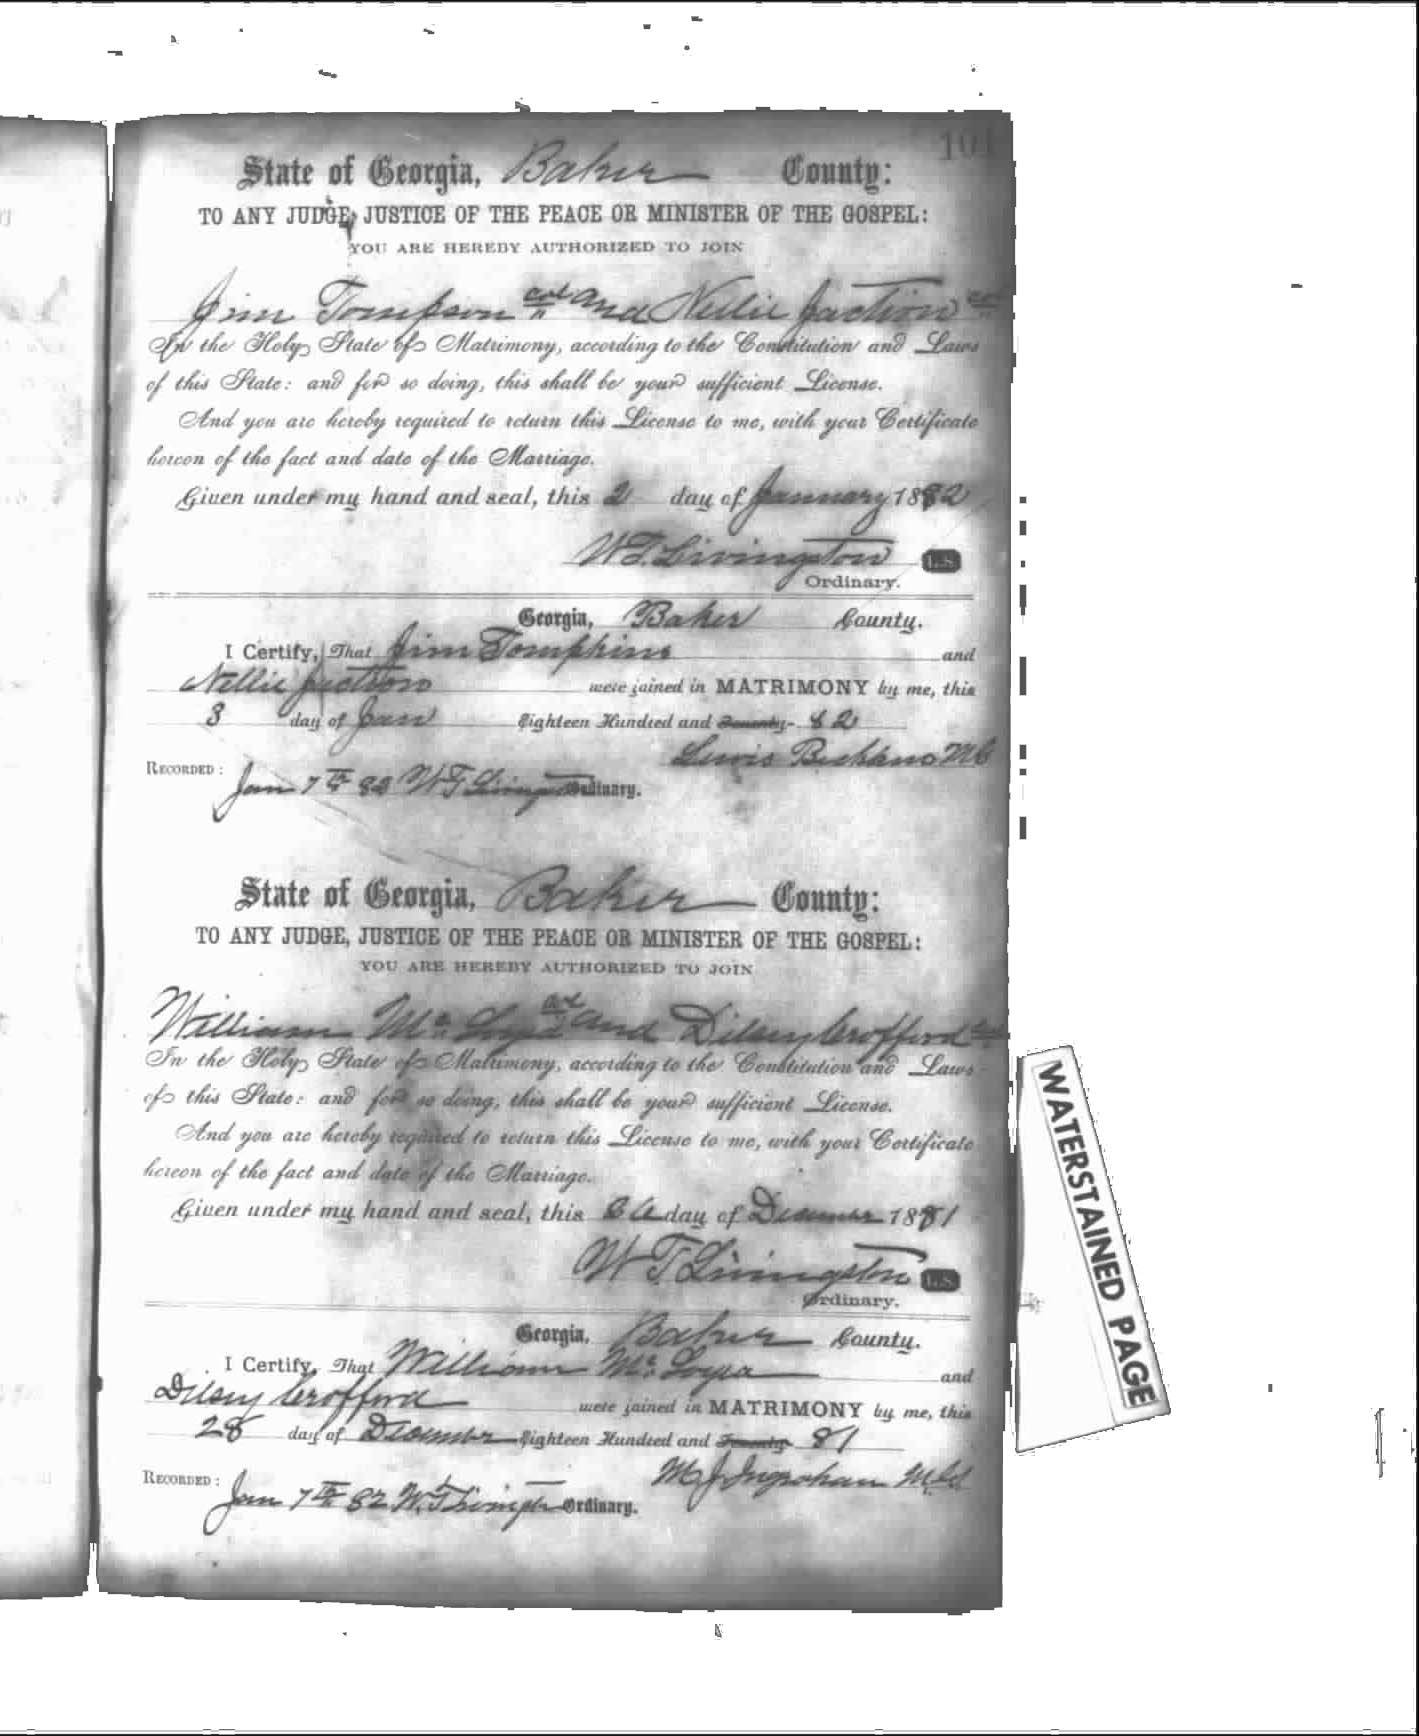 101
State of Georgia, Baker County:
TO ANY JUDGE, JUSTICE OF THE PEACE OR MINISTER OF THE GOSPEL:
YOU ARE HEREBY AUTHORIZED TO JOIN
Jim Tompson col and Nellie Jaction col
In the Holy State of Matrimony, according to the Constitution and Laws
of this State: and for so doing, this shall be your sufficient License.
And you are hereby required to return this License to me, with your Certificate
hereon of the fact and date of the Marriage.
Given under my hand and seal, this 2 day of January 1882
W. T. Livingston L.S.
Ordinary.
Georgia, Baker County.
I Certify, That Jim Tompkins and
Nellie Jaction were joined in MATRIMONY by me, this
3 day of Jan Eighteen Hundred and Seventy- 82
Lewis M G
RECORDED: Jan 7th 82 W T Livingston Ordinary.
State of Georgia, Baker County:
TO ANY JUDGE, JUSTICE OF THE PEACE OR MINISTER OF THE GOSPEL:
YOU ARE HEREBY AUTHORIZED TO JOIN
William Mc col and Dilsey Crofford col
In the Holy State of Matrimony, according to the Constitution and Laws
of this State: and for so doing, this shall be your sufficient License.
And you are hereby required to return this License to me, with your Certificate
hereon of the fact and date of the Marriage.
Given under my hand and seal, this 26 day of December 1881
W T Livingston L.S.
Ordinary.
Georgia, Baker County.
I Certify, That William Mc and
Dilsey Crofford were joined in MATRIMONY by me, this
28 day of December Eighteen Hundred and Seventy- 81
M J Ingraham
RECORDED: Jan 7th 82 W. T Livingston Ordinary.
WATERSTAINED PAGE